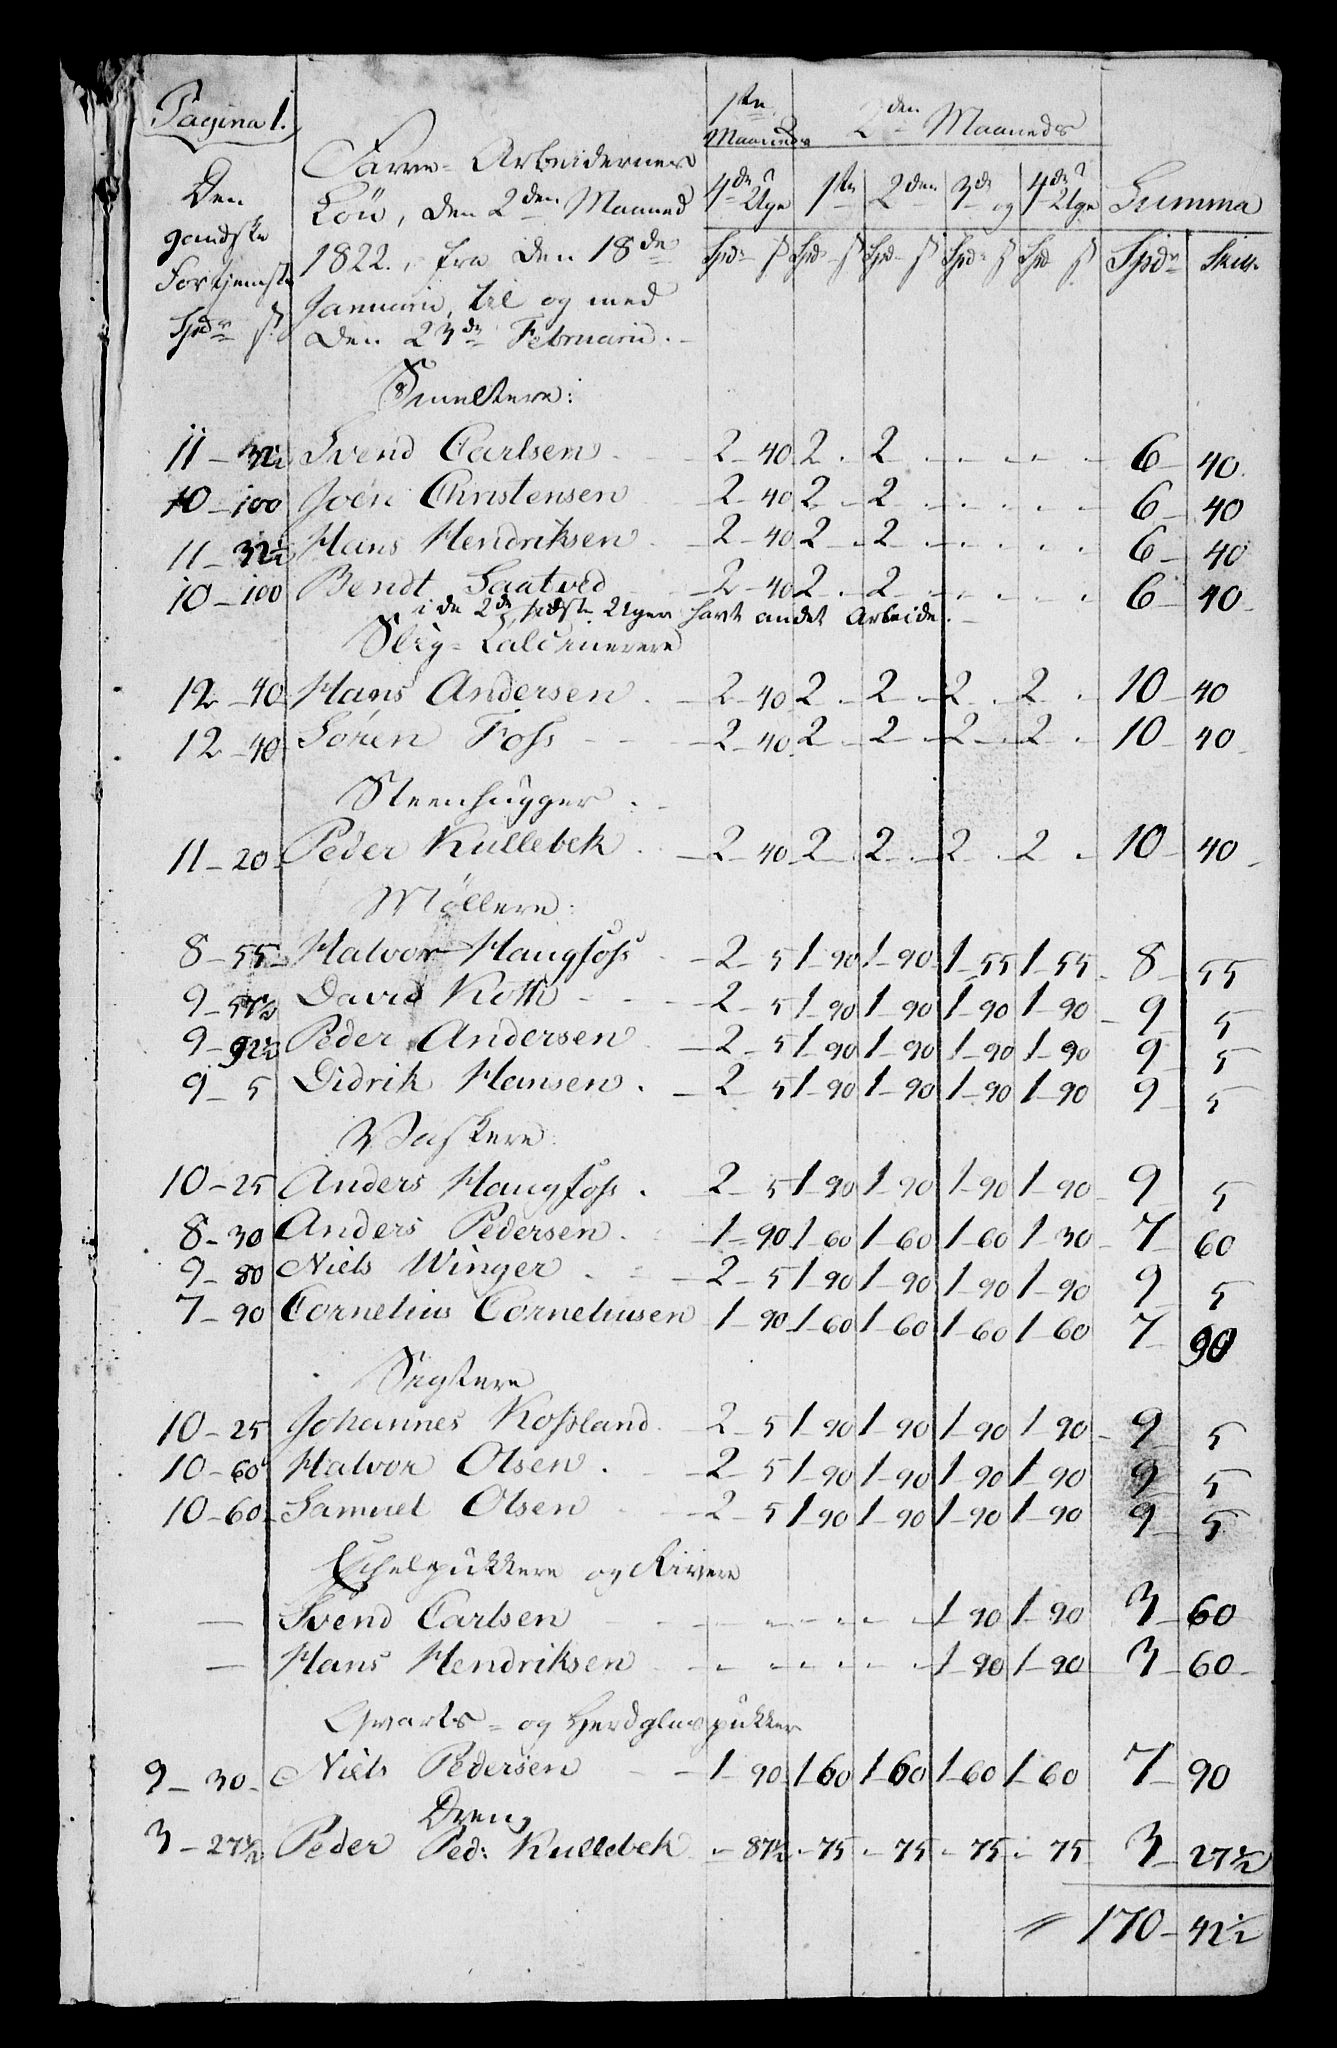 Pagina 1.
1ste Maaneds
2den Maaneds
Den gandske Fortjenste
Farve-Arbeidernes
Lön, den 2den Maaned
1822., fra den 18de
Januarii, til og med
den 23de Februarii.
4de Uge 1ste 2den 3de og 4de Uge Summa
Spdr ß Spd ß Spd ß Spdr ß Spd ß Spdr Skill.
Spdr ß
Smeltere:
11 - 32½ Svend Carlsen 2 - 40 2 - 2 - 6 - 40
10 - 100 Joen Christensen 2 - 40 2 - 2 - 6 - 40
11 - 32½ Hans Hendriksen 2 - 40 2 - 2 - 6 - 40
10 - 100 Bendt Saatved 2 - 40 2 - 2 - 6 - 40
i de 2de sidste Uger havt andet Arbeide.
Slig-Calcinerere
12 - 40 Hans Andersen 2 - 40 2 - 2 - 2 - 2 - 10 - 40
12 - 40 Sören Foss 2 - 40 2 - 2 - 2 - 2 - 10 - 40
Steenhugger
11 - 20 Peder Kullebek 2 - 40 2 - 2 - 2 - 2 - 10 - 40
Möllere:
8 - 55 Halvor Haugfoss 2 - 5 1 - 90 1 - 90 1 - 55 1 - 55 8 - 55
9 - 57½ David Koth 2 - 5 1 - 90 1 - 90 1 - 90 1 - 90 9 - 5
9 - 92½ Peder Andersen 2 - 5 1 - 90 1 - 90 1 - 90 1 - 90 9 - 5
9 - 5 Didrik Hansen 2 - 5 1 - 90 1 - 90 1 - 90 1 - 90 9 - 5
Vaskere:
10 - 25 Anders Haugfoss 2 - 5 1 - 90 1 - 90 1 - 90 1 - 90 9 - 5
8 - 30 Anders Pedersen 1 - 90 1 - 60 1 - 60 1 - 60 1 - 30 7 - 60
9 - 80 Niels Winger 2 - 5 1 - 90 1 - 90 1 - 90 1 - 90 9 - 5
7 - 90 Cornelius Corneliusen 1 - 90 1 - 60 1 - 60 1 - 60 1 - 60 7 - 90
Sigtere
10 - 25 Johannes Kossland 2 - 5 1 - 90 1 - 90 1 - 90 1 - 90 9 - 5
10 - 60 Halvor Olsen 2 - 5 1 - 90 1 - 90 1 - 90 1 - 90 9 - 5
10 - 60 Samuel Olsen 2 - 5 1 - 90 1 - 90 1 - 90 1 - 90 9 - 5
og Rivere
— Svend Carlsen 1 - 90 1 - 90 3 - 60
— Hans Hendriksen 1 - 90 1 - 90 3 - 60
Qvarts- og Herdglaspukker
9 - 30 Niels Pedersen 1 - 90 1 60 1 - 60 1 - 60 1 - 60 7 - 90
Dreng
3 - 27½ Peder Ped: Kullebek - 87½ - 75 - 75 - 75 - 75 3 - 27½
170 - 42½